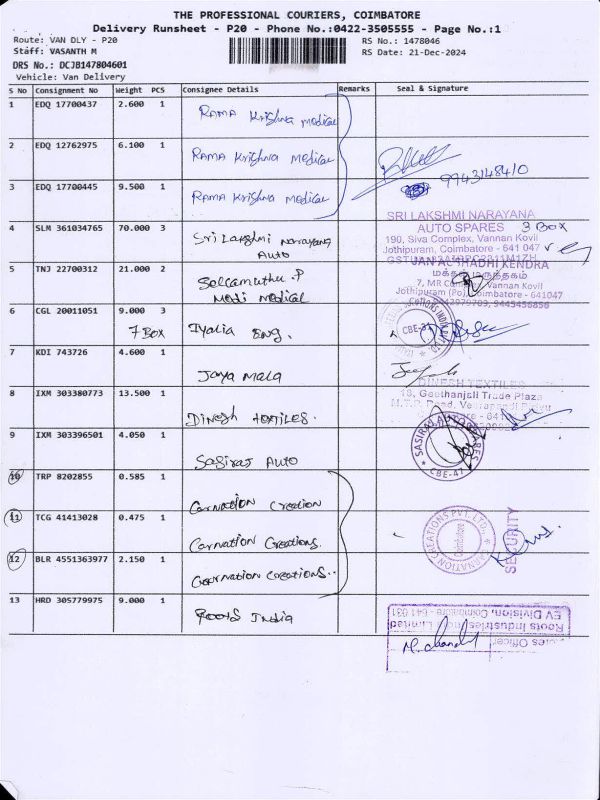 THE PROFESSIONAL COURIERS, COIMBATORE
Delivery Runsheet - P20 - Phone No.:0422-3505555 - Page No.:1
Route: VAN DLY - P20
RS No.: 1478046
Staff: VASANTH M
RS Date: 21-Dec-2024
DRS No.: DCJB147804601
Vehicle: Van Delivery
S No Consignment No Weight PCS Consignee Details Remarks Seal & Signature
1 EDQ 17700437 2.600 1 Rama Krishna medical
2 EDQ 12762975 6.100 1 Rama Krishna medical
9943148410
3 EDQ 17700445 9.500 1 Rama Krishna medical
SRI LAKSHMI NARAYANA
AUTO SPARES 3 Box
4 SLM 361034765 70.000 3 Sri Lakshmi narayana
Auto
190, Siva Complex, Vannan Kovil
Jothipuram, Coimbatore - 641 047
5 TNJ 22700312 21.000 2
P
Medi medical
JAN AUSHADHI KENDRA
மக்கள் மருந்தகம்
Vannan Kovil
Jothipuram (Po), Coimbatore - 641047
6 CGL 20011051 9.000 3
7 Box
Eng.
CBE-
7 KDI 743726 4.600 1 Jaya Mala
8 IXM 303380773 13.500 1 Dinesh textiles.
DINESH TEXTILES
18, Geethanjali Trade Plaza
9 IXM 303396501 4.050 1 Sasiraj Auto
CBE-47
10 TRP 8202855 0.585 1 Carnation Creation
11 TCG 41413028 0.475 1 Carnation Creations.
12 BLR 4551363977 2.150 1 Carnation Creations..
CARNATION CREATIONS PVT. LTD.
Coimbatore
SECURITY
13 HRD 305779975 9.000 1 Roots India
Roots Industries India Limited
EV Division, Coimbatore - 641 031
Officer